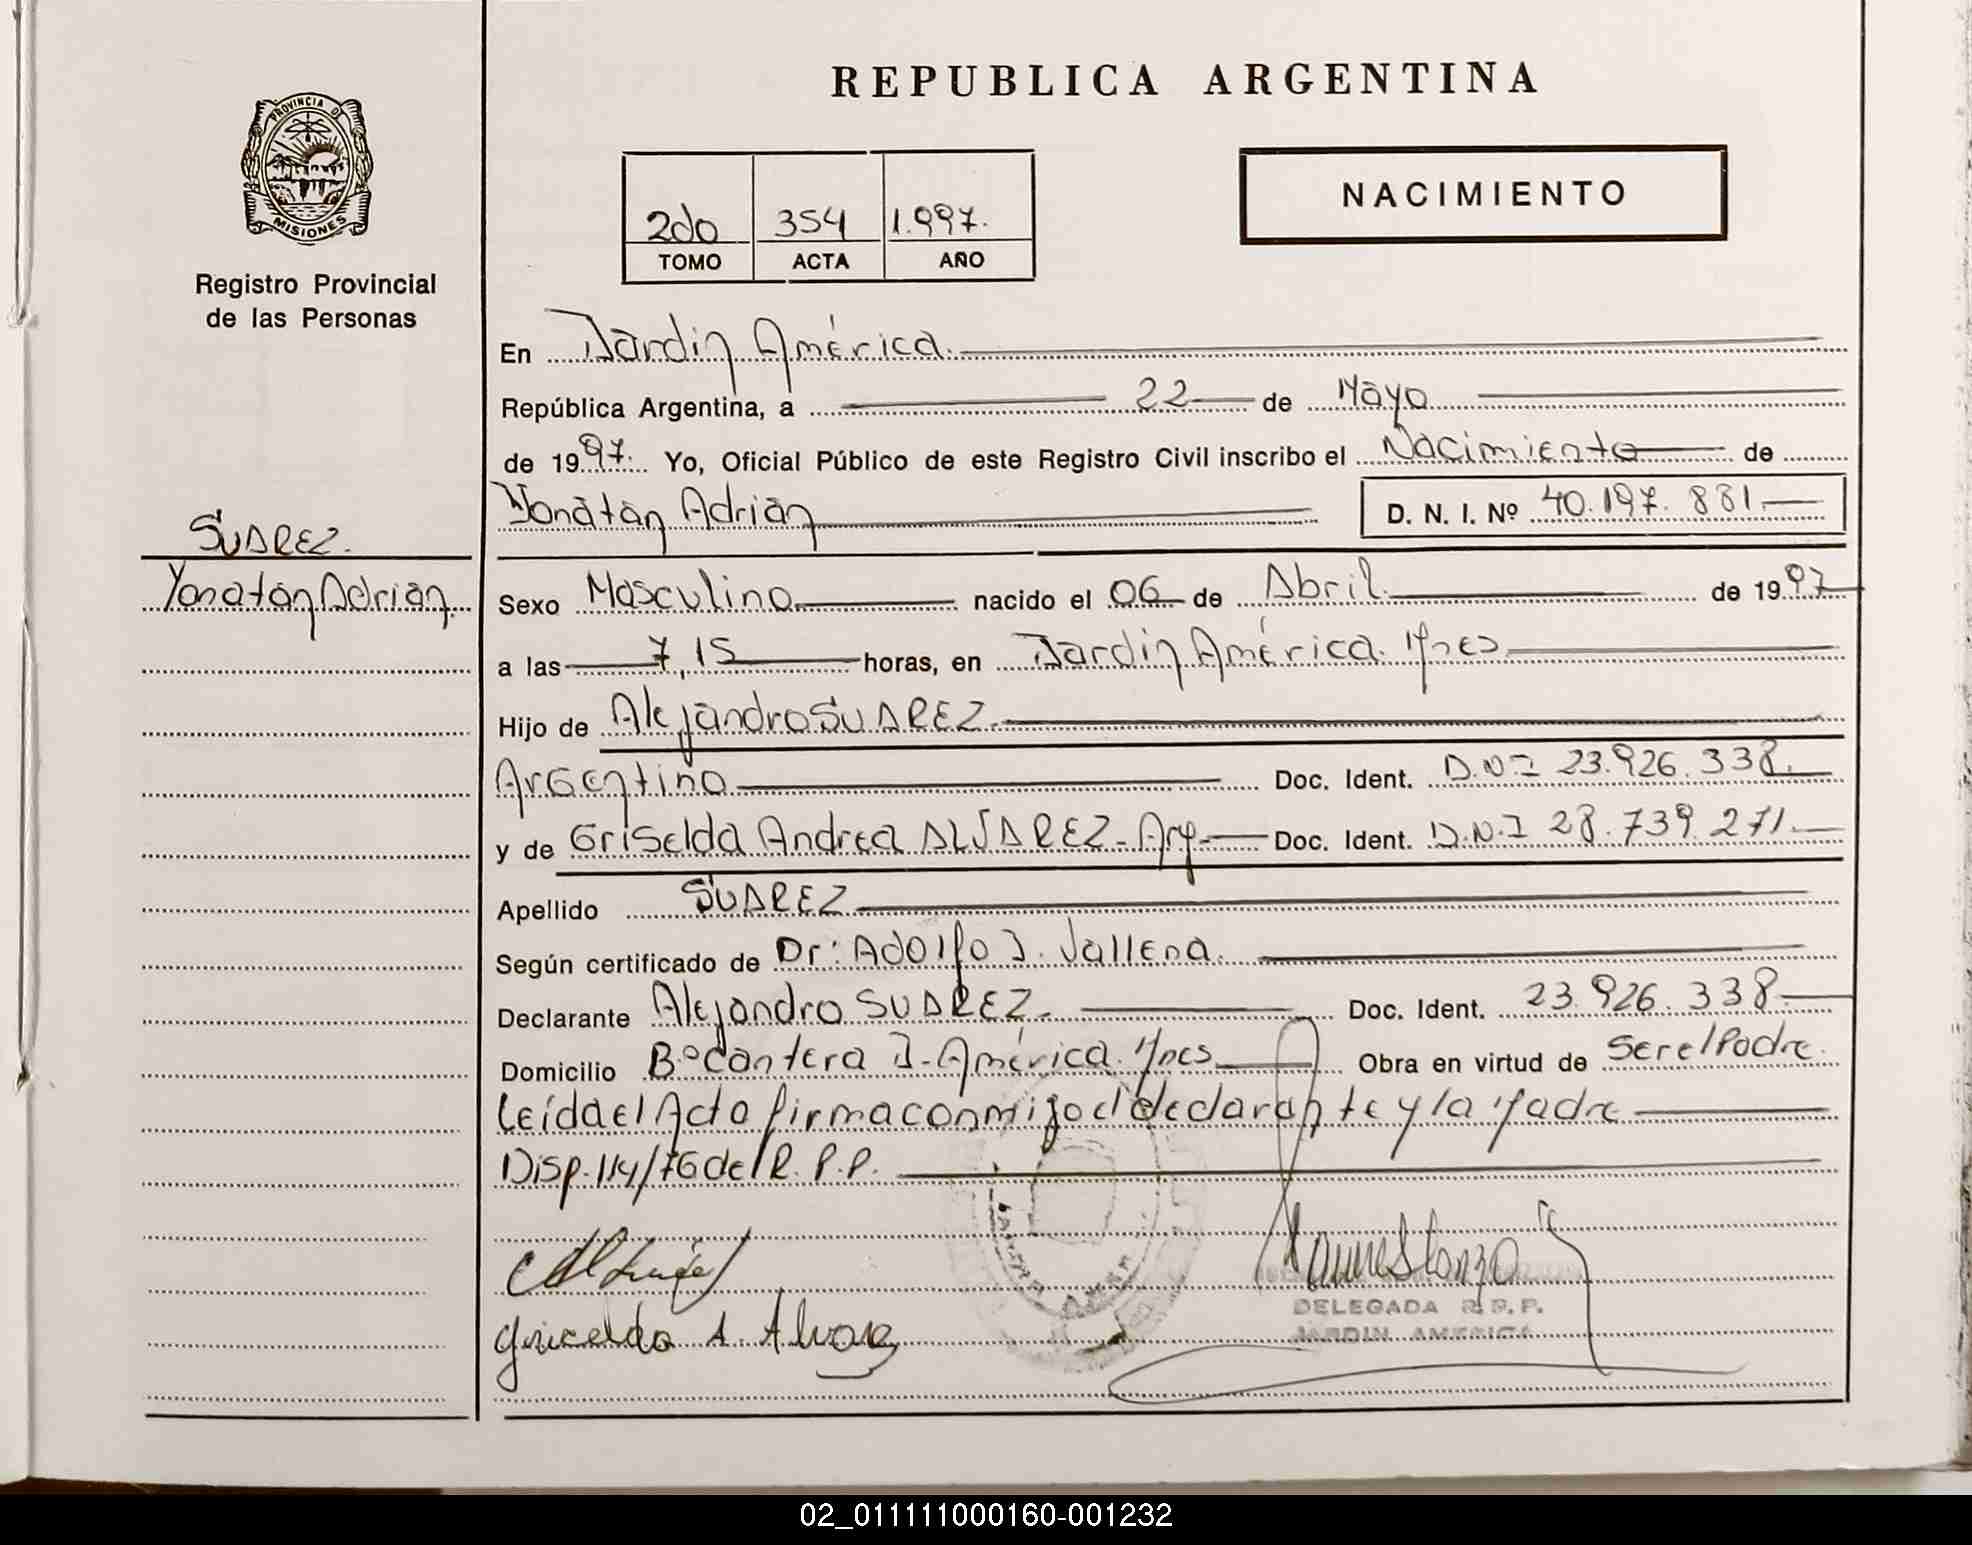 REPUBLICA ARGENTINA
PROVINCIA DE
MISIONES
Registro Provincial
de las Personas
NACIMIENTO
2do 354 1.997.
TOMO ACTA AÑO
En Jardin América.
República Argentina, a 22 de Mayo
de 1997. Yo, Oficial Público de este Registro Civil inscribo el Nacimiento de
Yonatan Adrián D. N. I. Nº 40.197.881
SUAREZ.
Yonatan Adrián.
Sexo Masculino nacido el 06 de Abril de 1997
a las 7,15 horas, en Jardin América. Mnes
Hijo de Alejandro SUAREZ.
Argentino Doc. Ident. D.N.I 23.926.338.
y de Griselda Andrea ALVAREZ - Arg. Doc. Ident. D.N.I 28.739.271.
Apellido SUAREZ
Según certificado de Dr: Adolfo J. Vallena.
Declarante Alejandro SUAREZ. Doc. Ident. 23.926.338.
Domicilio Bº Cantera J. América. Mnes. Obra en virtud de Ser el Padre.
Leída el Acta firma conmigo el declarante y la Madre
Disp. 114/76 del R. P. P.
Griselda A. Alvarez
DELEGADA R. P. P.
JARDIN AMERICA
02_011111000160-001232